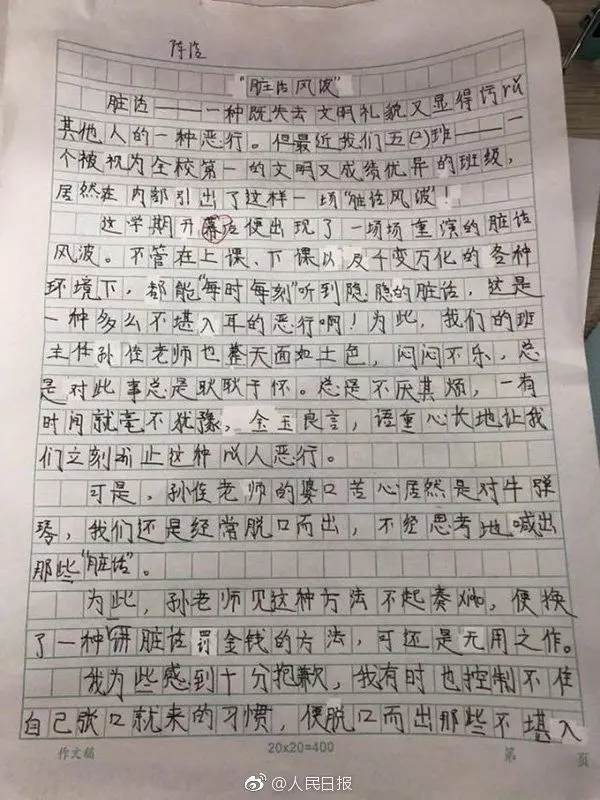 陈浩
“脏话风波”
脏话———一种既失去文明礼貌又显得污
其他人的一种恶行。但最近我们五(2)班———一
个被视为全校第一的文明又成绩优异的班级，
居然在内部引出了这样一场“脏话风波！
这学期开幕后便出现了一场场重演的脏话
风波。不管在上课、下课以及千变万化的各种
环境下，都能“每时每刻”听到隐隐的脏话，这是
一种多么不堪入耳的恶行啊！为此，我们的班
主任孙俊老师也整天面如土色，闷闷不乐，总
是对此事总是耿耿于怀。总是不厌其烦，一有
时间就毫不犹豫，金玉良言，语重心长地让我
们立刻停止这种 人恶行。
可是，孙俊老师的婆口苦心居然是对牛弹
琴，我们还是经常脱口而出，不经思考地喊出
那些“脏话”。
为此，孙老师见这种方法不起奏效，便换
了一种讲脏话罚金钱的方法，可还是无用之作。
我为些感到十分抱歉，我有时也控制不住
自己张口就来的习惯，便脱口而出那些不堪入
作文稿 20×20=400 第 页
@人民日报